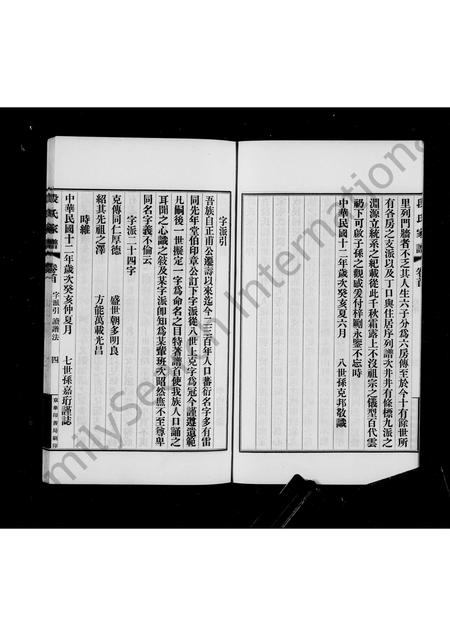 段氏家譜 卷首
里列門牆者不乏其人生六子分為六房傳至於今十有餘世所
有各房之支派以及丁口與住居序列譜次井井有條標九派之
淵源立統系之紀載從此千秋霜露上不沒祖宗之儀型百代雲
礽下可啟子孫之觀感爰付梓劂永鑒不忘時
中華民國十二年歲次癸亥六月 八世孫克邦敬識
字派引
吾族自正甫公遷壽以來迄今二三百年人口蕃衍名字多有雷
同先年堂伯印章公訂下字派從八世上克字為冠今謹遵遺範
凡嗣後一世擬定一字為命名之目特著譜首使我族人口誦之
耳聞之心識之敍及某字派卽知為某輩班次昭然庶不至尊卑
同名字義不倫云
字派二十四字
克傳同仁厚德 盛世朝多明良
紹其先祖之澤 方能萬載光昌
時維
中華民國十二年歲次癸亥仲夏月 七世孫嘉珩謹誌
段氏家譜 卷首 字派引 讀譜法 四 京華印書局刷印
FamilySearch International